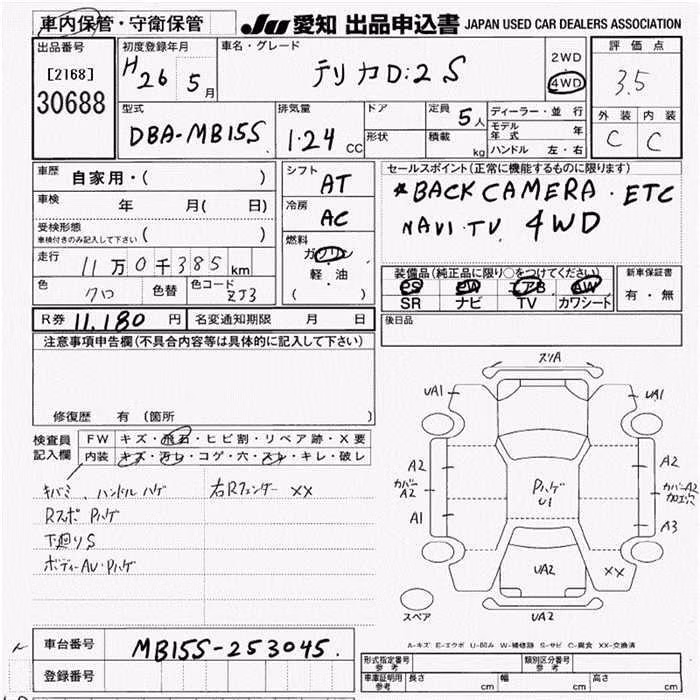 車内保管・守衛保管
JU 愛知 出品申込書 JAPAN USED CAR DEALERS ASSOCIATION
出品番号
[2168]
30688
初度登録年月
H26 5月
車名・グレード
デリカD:2 S
2WD
4WD
評価点
3.5
外装 内装
C C
型式
DBA-MB15S
排気量
1.24 CC
ドア
形状
定員 5人
積載 kg
ディーラー・並行
モデル年式 年
ハンドル 左・右
車歴 自家用・( )
車検 年 月( 日)
受検形態 ( )
車検付きのみ記入して下さい
走行 11万0千385km
色 クロ 色替 色コード ZJ3
シフト
AT
冷房
AC
燃料
ガソリン
軽・油
( )
セールスポイント(正常に機能するものに限ります)
*BACK CAMERA・ETC
NAVI・TV 4WD
装備品(純正品に限り○をつけてください)
PS PW エアB AW
SR ナビ TV カワシート
新車保証書
有・無
R券 11,180 円 名変通知期限 月 日
後日品
注意事項申告欄(不具合内容等は具体的に記入して下さい)
修復歴 有 〔箇所 〕
検査員記入欄
FW キズ・飛石・ヒビ割・リペア跡・X要
内装 キズ・汚レ・コゲ・穴・スレ・キレ・破レ
キバミ、ハンドルハゲ
右Rフェンダー XX
Rスポ Pハゲ
下廻りS
ボディーAU・Pハゲ
スリA
UA1 UA1
A2 A2
カバーA2 カバーA2
Pハゲ
U1
A1 A3
UA2 XX
スペア
UA2
A-キズ E-エクボ U-凹み W-補修跡 S-サビ C-腐食 XX-交換済
車台番号 MB15S-253045
登録番号
型式指定番号 参考
類別区分番号 参考
車庫証明用 参考 長さ cm 幅 cm 高さ cm